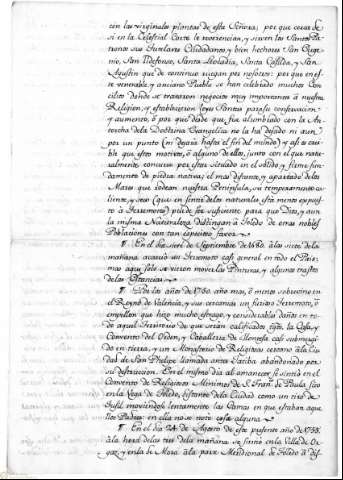 con las virginales plantas de esta Señora; por que coros de
si en la Celestial Corte le reverencian, y sirven los Santos Pa-
tronos sus Tutelares Ciudadanos, y bien hechores San Euge-
nio, San Ildefonso, Santa Leokadia, Santa Casilda, y San
Agustin que de continuo ruegan por nosotros: por que en es-
te venerable, y anciano Pueblo se han celebrado muchos Con-
cilios donde se trataron negocios muy importantes a nuestra
Religion, y establecieron leyes Santas para su conservacion
y aumento, ó por que desde que fue alumbrado con la An-
torcha dela Doctrina Evangelica no la ha dejado ni aun
por un punto (ni dejará hasta el fin del mundo) y assi es crei-
ble que estos motivos, ó alguno de ellos, junto con el que natu-
ralmente concurre por estár situado en el solido, y firme fun-
damento de piedra nativa; el mas distante, y apartado de los
Mares que rodean nuestra Peninsula, su temperamento ca-
liente, y seco (que en sentir delos naturales está menos expues-
to á Terremotos) puede ser suficiente para que Dios, y aun
la misma Naturaleza distingan á Toledo de otras nobles
Poblaciones con tan especiales favores.
¶. En el dia siete de Septiembre de 1680. á las siete dela
mañana acaeció un Terremoto casi general en todo el Pais,
mas aqui solo se vieron mover las Pinturas, y algunos trastos
delas Estancias.
¶. Por los años de 1750. año mas, ó menos sobrevino en
el Reyno de Valencia, y sus cercanias un furioso Terremoto, ó
empellon que hizo mucho estrago, y considerables daños en to-
do aquel Territorio de que serán calificados tgos. la Casa, y
Convento del Orden, y Caballeria de Montesa casi sumergi-
do en tierra, y un Monasterio de Religiosas cercano á la Ciu-
dad de San Phelipe llamada antes Xatiba abandonado por
su destruccion. En el mismo dia al amanecer se sintió en el
Convento de Religiosos Minimos de S. Fran.co de Paula, sito
en la Vega de Toledo, distante dela Ciudad como un tiro de
fusil moviendose lentamente las Camas en que estaban aque-
llos Padres en ella no se notó cosa alguna.
¶. En el dia 24. de Agosto de este presente año de 1755.
á la hora delas tres dela mañana se sintió en la Villa de Or-
gaz, y en la de Mora á la parte Meridional de Toledo á dis-